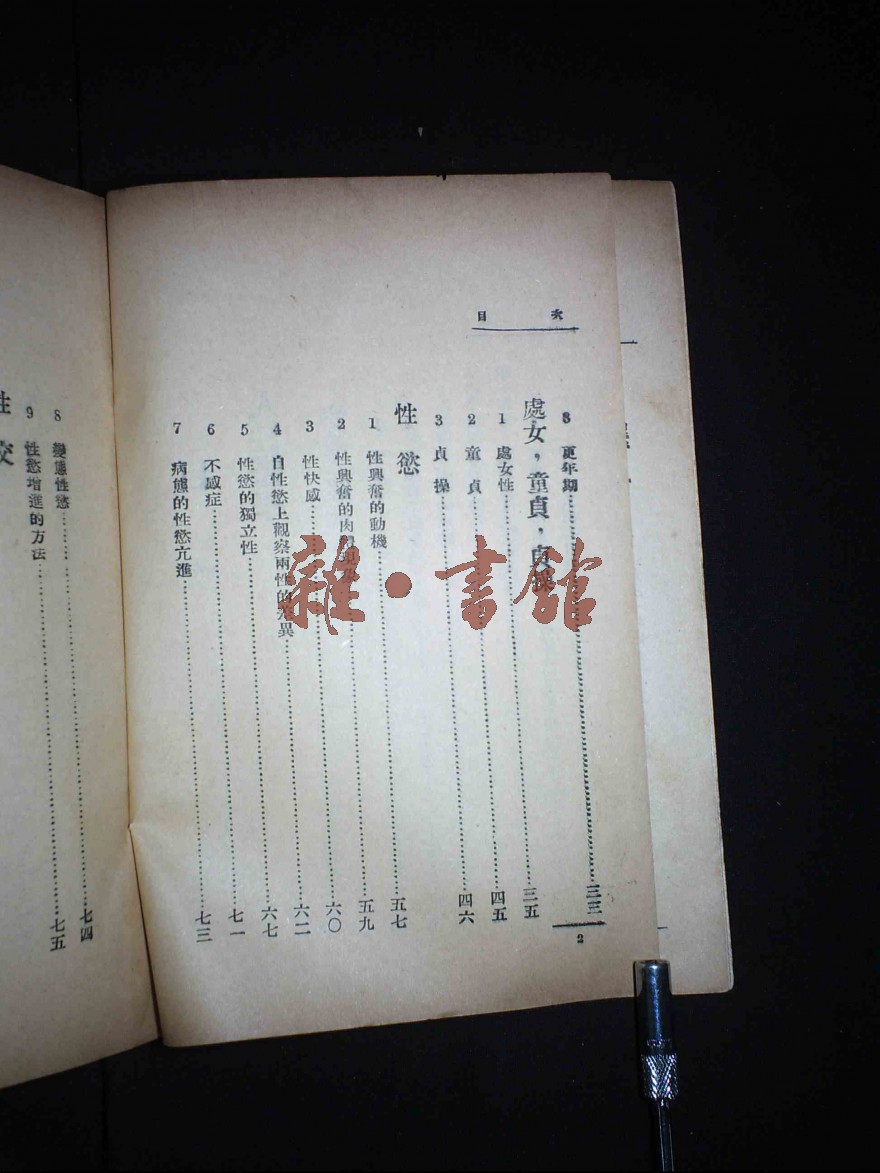 目次
8 更年期……三三
處女，童貞，貞操
1 處女性……三五
2 童貞……四五
3 貞操……四六
性慾
1 性興奮的動機……五七
2 性興奮的肉……五九
3 性快感……六〇
4 自性慾上觀察兩性的差異……六二
5 性慾的獨立性……六七
6 不感症……七一
7 病態的性慾亢進……七三
2
8 變態性慾……七四
9 性慾增進的方法……七五
性交
雜·書館